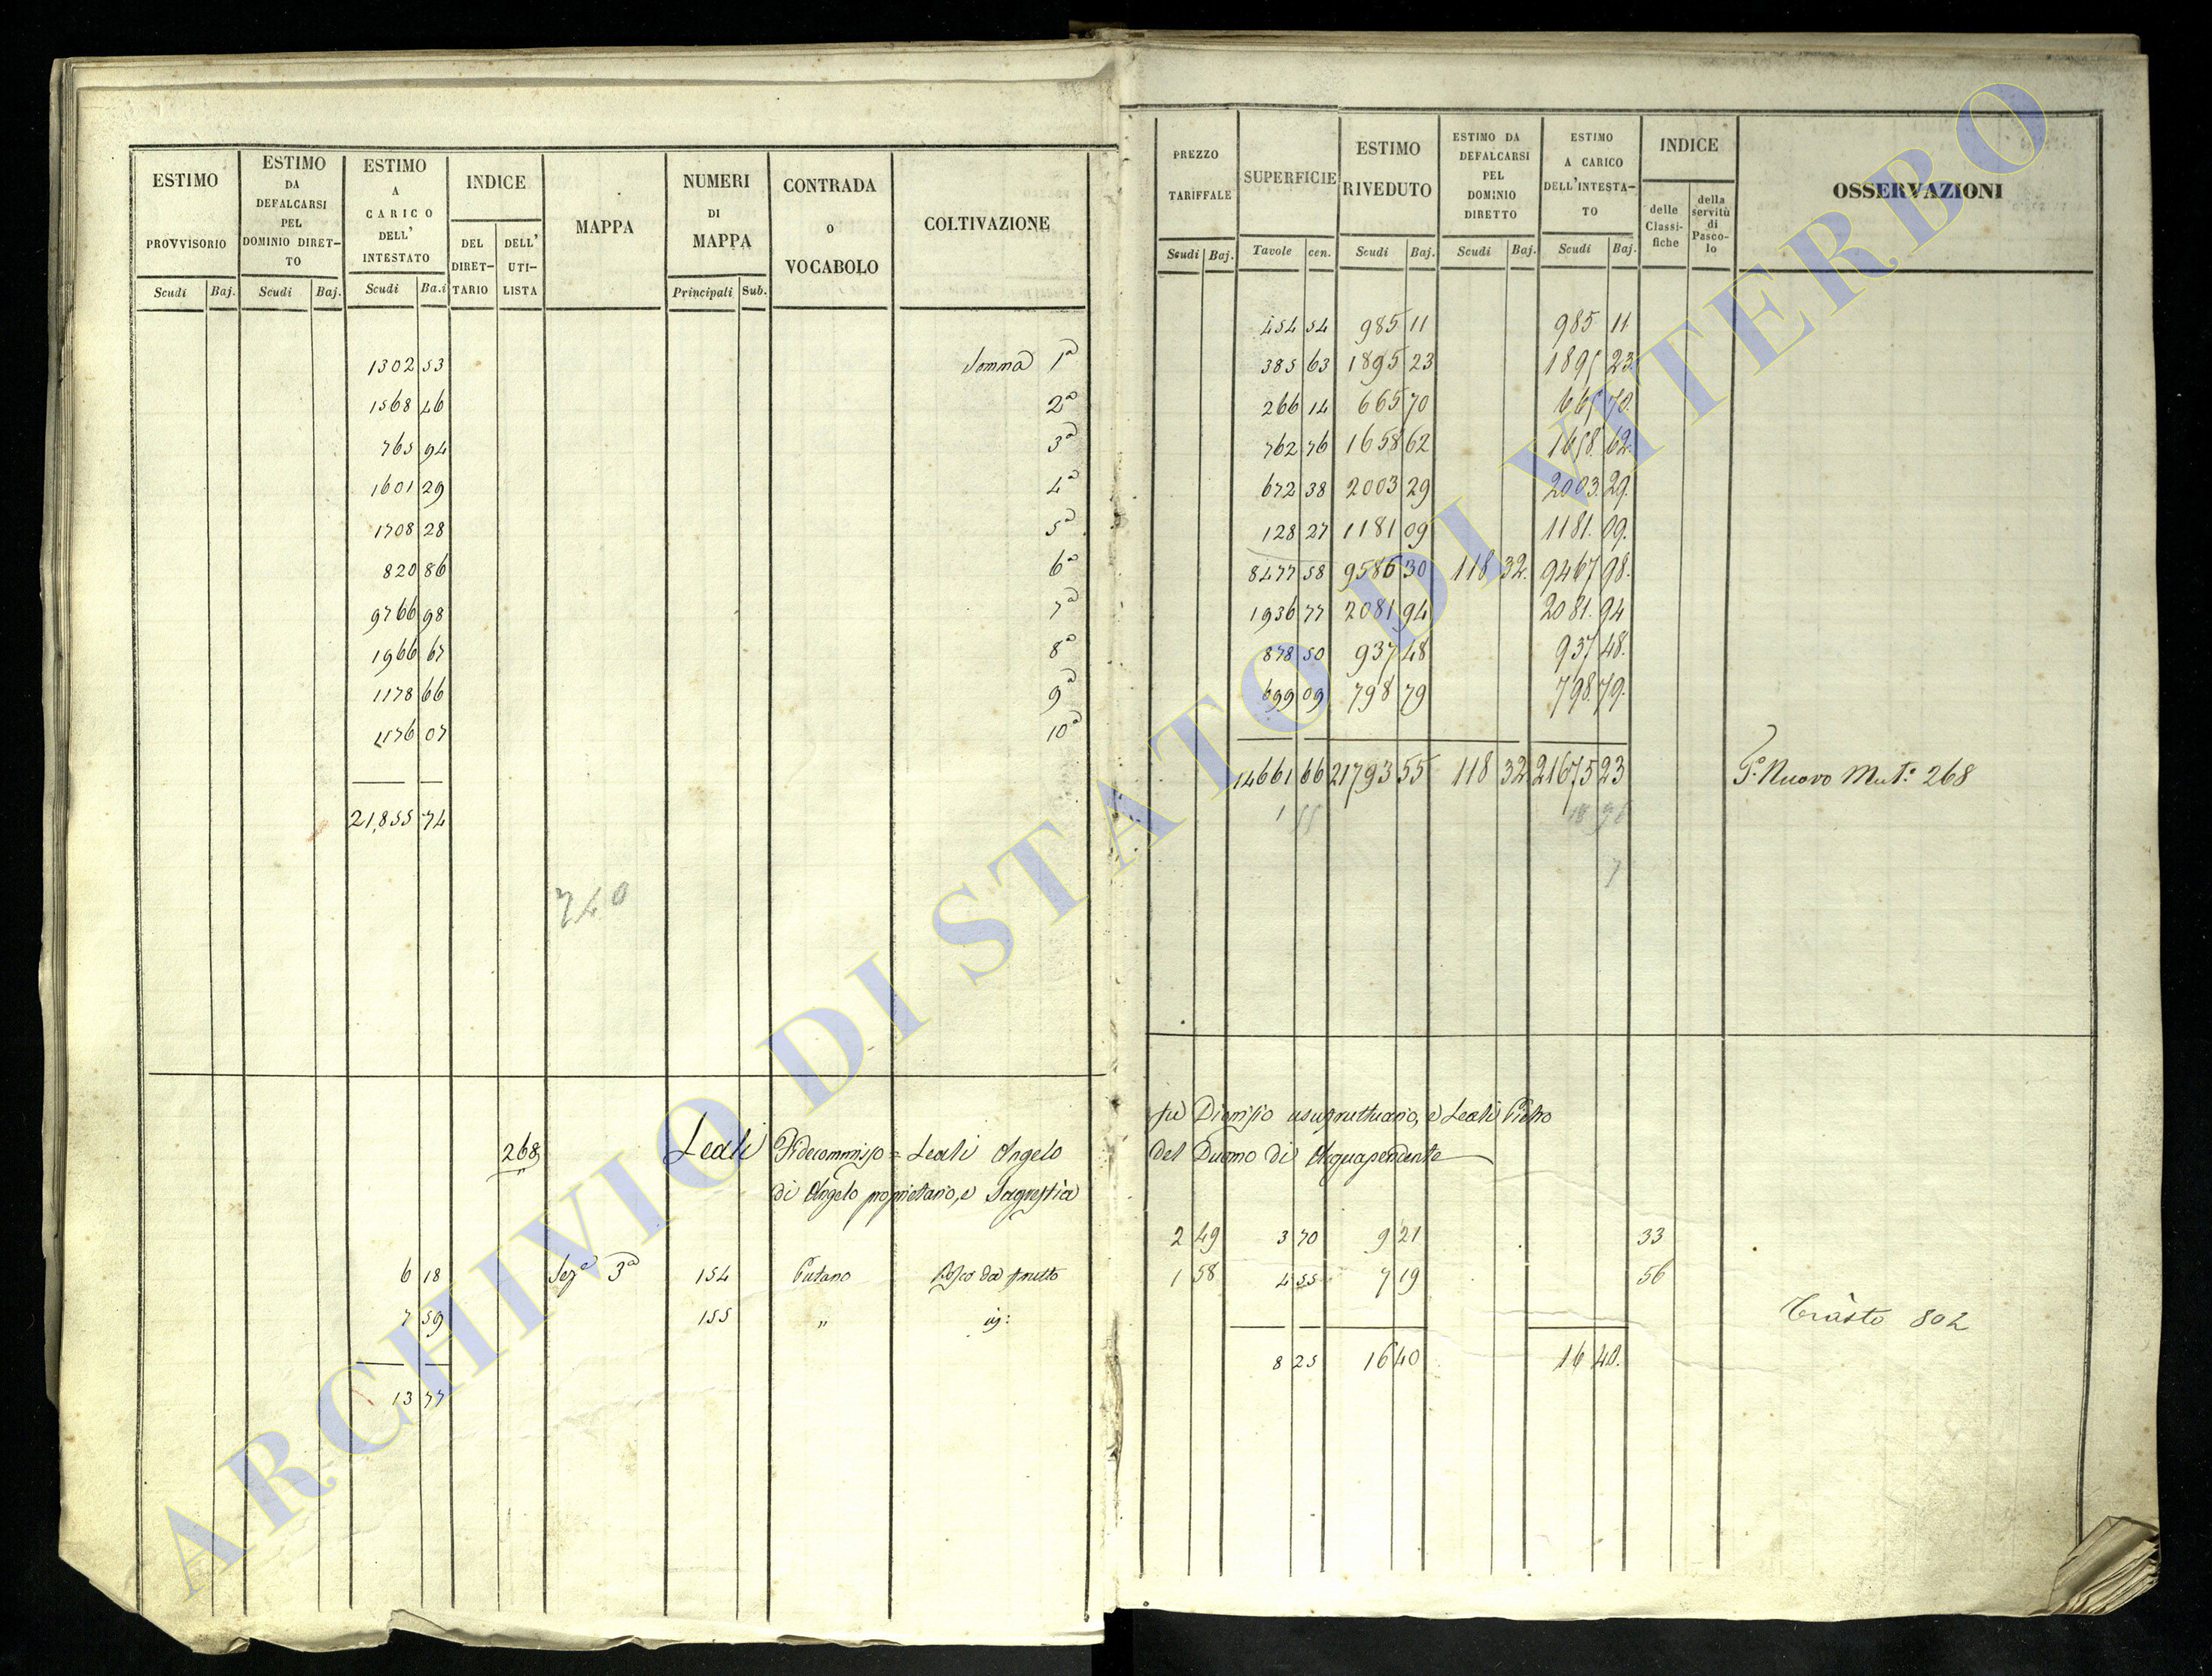 ESTIMO PROVVISORIO
Scudi Baj.
ESTIMO DA DEFALCARSI PEL DOMINIO DIRETTO
DOMINIO DIRET-
TO
Scudi Baj.
ESTIMO A CARICO DELL' INTESTATO
Scudi Ba.i
INDICE
DEL DIRET-
TARIO
DELL' UTI-
LISTA
MAPPA
NUMERI DI MAPPA
Principali Sub.
CONTRADA O VOCABOLO
COLTIVAZIONE
1302 53 Somma 1a
1568 46 2a
765 94 3a
1601 29 4a
1708 28 5a
820 86 6a
9766 98 7a
1966 67 8a
1178 66 9a
1176 07 10a
21,855 74
740
268 Leali Fidecommisso = Leali Angelo
di Angelo proprietario, e Sagrestia
6 18 Seza 3a 154 Putano Bosco da frutto
7 59 155 " id:
13 77
PREZZO TARIFFALE
Scudi Baj.
SUPERFICIE
Tavole cen.
ESTIMO RIVEDUTO
Scudi Baj.
ESTIMO DA DEFALCARSI PEL DOMINIO DIRETTO
Scudi Baj.
ESTIMO A CARICO DELL'INTESTA-
TO
Scudi Baj.
INDICE
delle Classi-
fiche
della servitù di Pasco-
lo
OSSERVAZIONI
454 54 985 11 985 11
385 63 1895 23 1895 23
266 14 665 70 665 70
762 76 1658 62 1658. 62.
672 38 2003 29 2003. 29.
128 27 1181 09 1181. 09.
8477 58 9586 30 118 32. 9467 98.
1936 77 2081 94 2081. 94
878 50 937 48 937 48.
699 09 798 79 798. 79.
14661 66 21793 55 118 32 21675 23 Po. Nuovo Mut.e 268
1 55
fu Dionisio usufruttuario, e Leali Pietro
del Duomo di Acquapendente
2 49 3 70 9 21 33
1 58 4 55 7 19 56
804
8 25 16 40 16 40.
ARCHIVIO DI STATO DI VITERBO